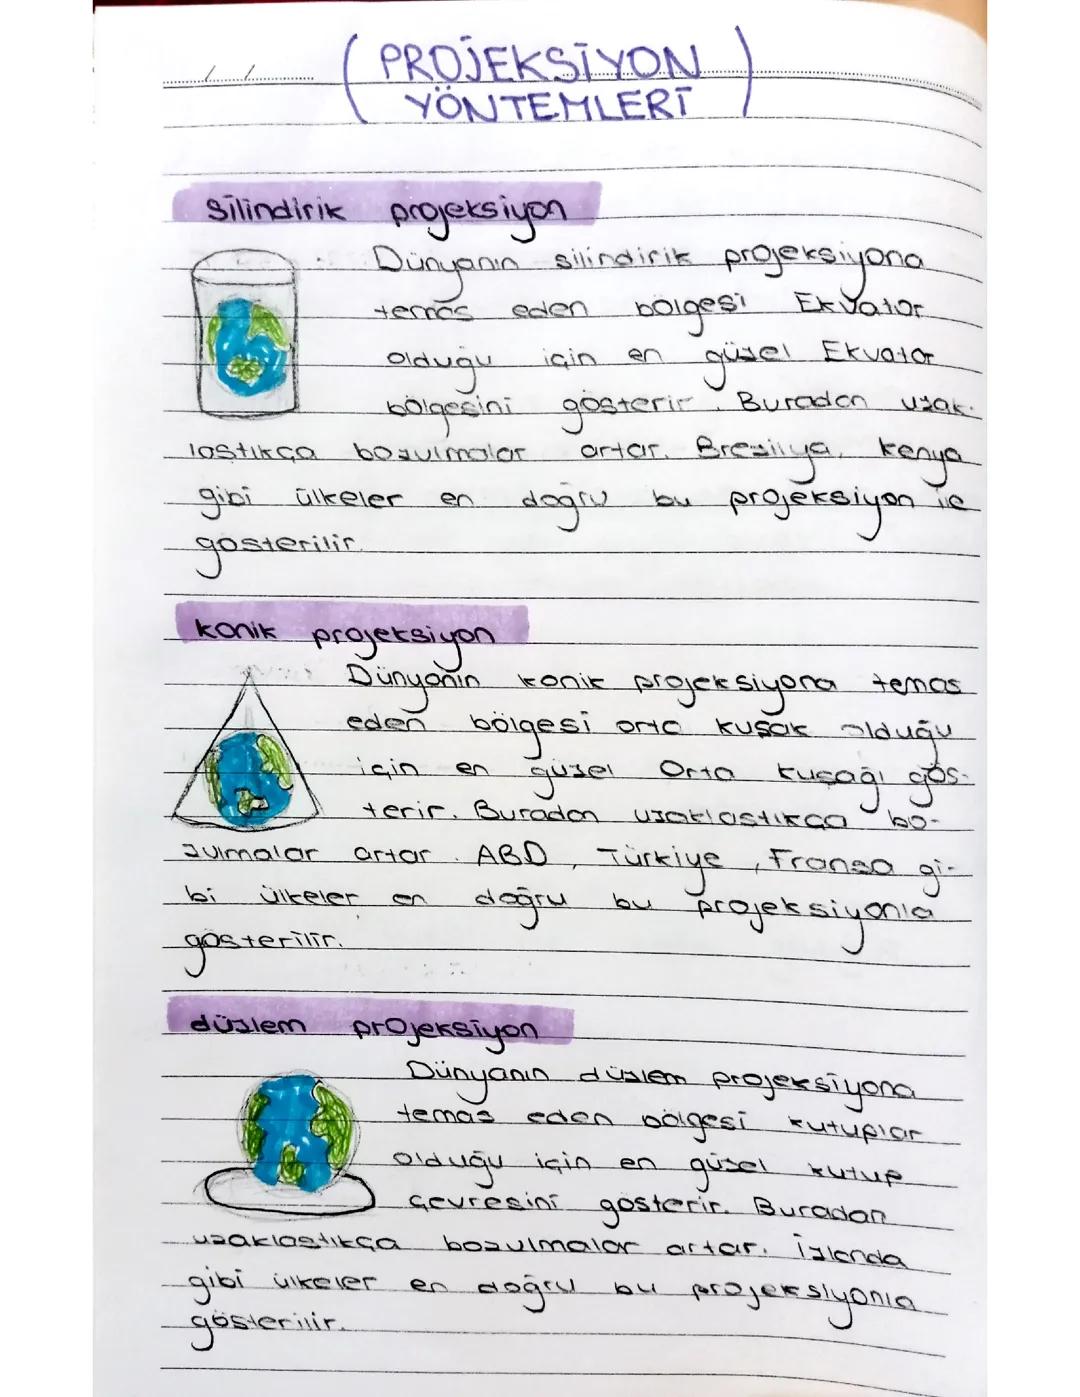 PROJEKSİYON
YÖNTEMLERİ
Silindirik projeksiyon
Dünyanın silindirik projeksiyona
temas eden bölgesi Ekvator
olduğu için en güzel Ekvator
bölgesini gösterir. Buradan uzak-
laştıkça bozulmalar artar. Brezilya, Kenya
gibi ülkeler en doğru bu projeksiyon ile
gösterilir.
konik projeksiyon
Dünyanın konik projeksiyona temas
eden bölgesi orta kuşak olduğu
için en güzel Orta kuşağı gös-
terir. Buradan uzaklaştıkça bo-
zulmalar artar. ABD, Türkiye, Fransa gi-
bi ülkeler en doğru bu projeksiyonla
gösterilir.
düzlem projeksiyon
Dünyanın düzlem projeksiyona
temas eden bölgesi kutuplar
olduğu için en güzel kutup
çevresini gösterir. Buradan
uzaklaştıkça bozulmalar artar. İzlanda
gibi ülkeler en doğru bu projeksiyonla
gösterilir.